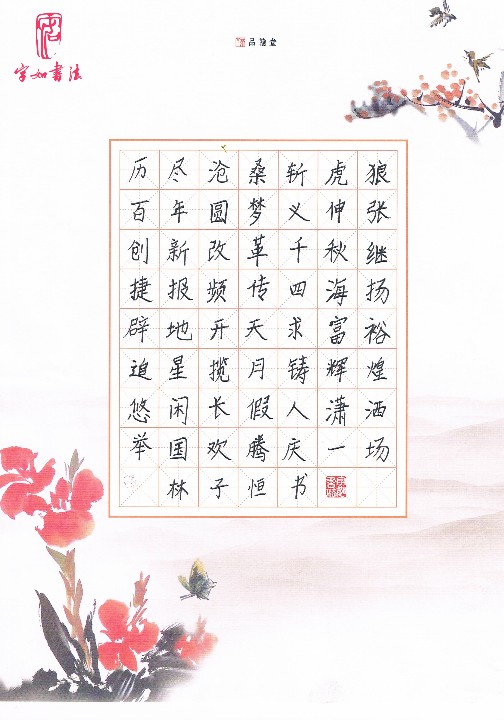 字如書法
历尽沧桑斩虎狼
百年圆梦义伸张
创新改革千秋继
捷报频传四海扬
辟地开天求富裕
追星揽月铸辉煌
悠闲长假人潇洒
举国欢腾庆一场
林子恒书